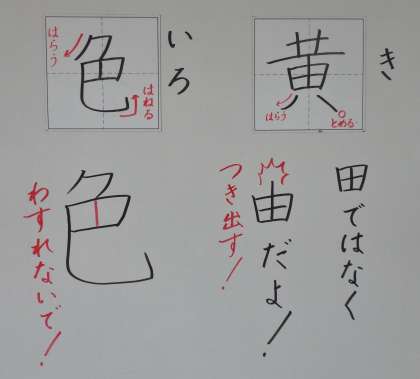 黄
き
はらう
とめる
田ではなく
由だよ！
つき出す！
色
いろ
はらう
はねる
色
わすれないで！